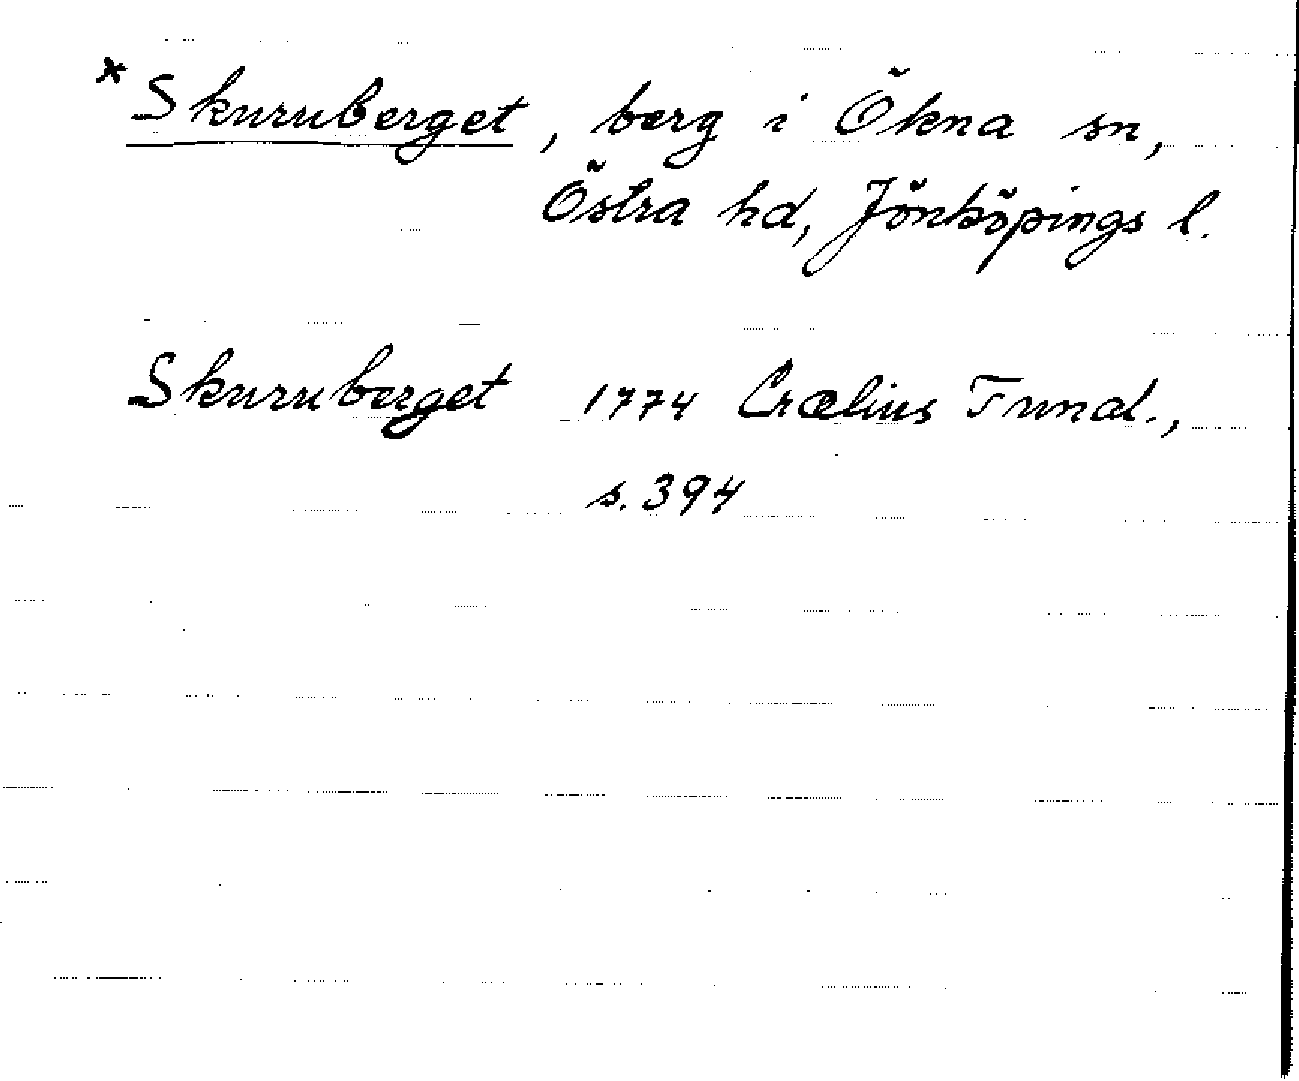 *Skuruberget, berg i Ökna sn,
Östra hd, Jönköpings l.
Skuruberget 1774 Crælius Tunal.,
s. 394